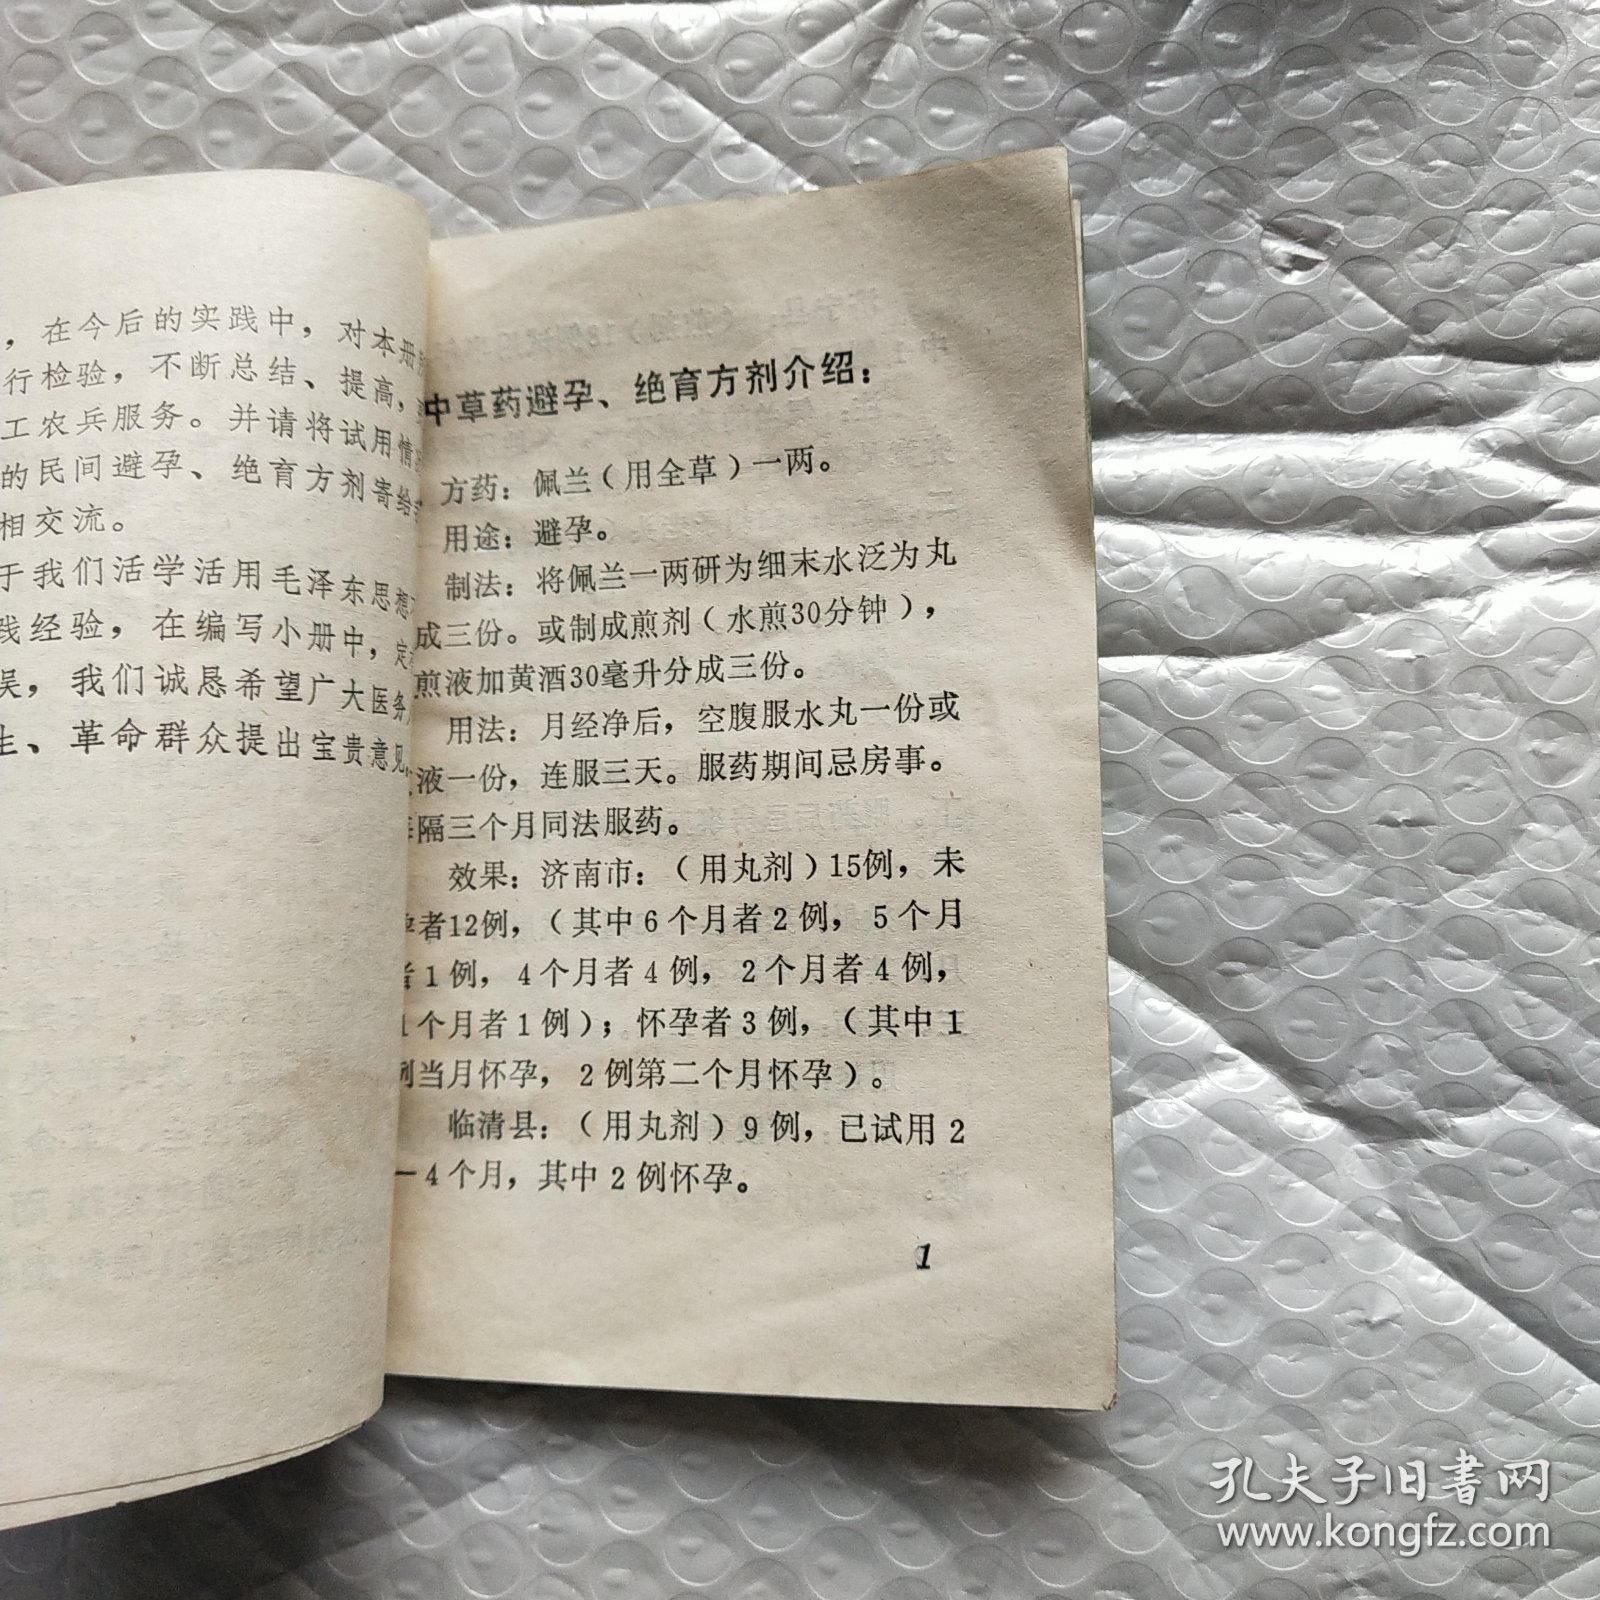 ，在今后的实践中，对本册
行检验，不断总结、提高，
工农兵服务。并请将试用情
的民间避孕、绝育方剂寄给
相交流。
于我们活学活用毛泽东思想
践经验，在编写小册中，定
误，我们诚恳希望广大医务
生、革命群众提出宝贵意见
中草药避孕、绝育方剂介绍：
方药：佩兰（用全草）一两。
用途：避孕。
制法：将佩兰一两研为细末水泛为丸
成三份。或制成煎剂（水煎30分钟），
煎液加黄酒30毫升分成三份。
用法：月经净后，空腹服水丸一份或
液一份，连服三天。服药期间忌房事。
隔三个月同法服药。
效果：济南市：（用丸剂）15例，未
孕者12例，（其中6个月者2例，5个月
者1例，4个月者4例，2个月者4例，
1个月者1例）；怀孕者3例，（其中1
例当月怀孕，2例第二个月怀孕）。
临清县：（用丸剂）9例，已试用2
—4个月，其中2例怀孕。
1
孔夫子旧书网
www.kongfz.com